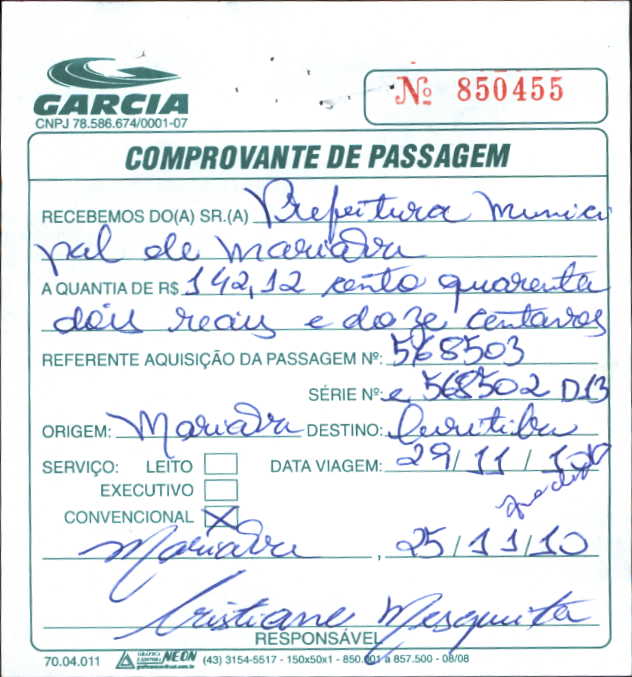 GARCIA
CNPJ 78.586.674/0001-07
Nº 850455
COMPROVANTE DE PASSAGEM
RECEBEMOS DO(A) SR.(A) Prefeitura Munici
pal de Marialva
A QUANTIA DE R$ 142,12 cento quarenta
dois reais e doze centavos
REFERENTE AQUISIÇÃO DA PASSAGEM Nº: 568503
SÉRIE Nº: e 568502 D13
ORIGEM: Marialva DESTINO: Curitiba
SERVIÇO: LEITO DATA VIAGEM: 29/11/10
EXECUTIVO
CONVENCIONAL X
Marialva, 25/11/10
Cristiane Mesquita
RESPONSÁVEL
70.04.011 GRÁFICA EDITORA NEON (43) 3154-5517 - 150x50x1 - 850.001 a 857.500 - 08/08